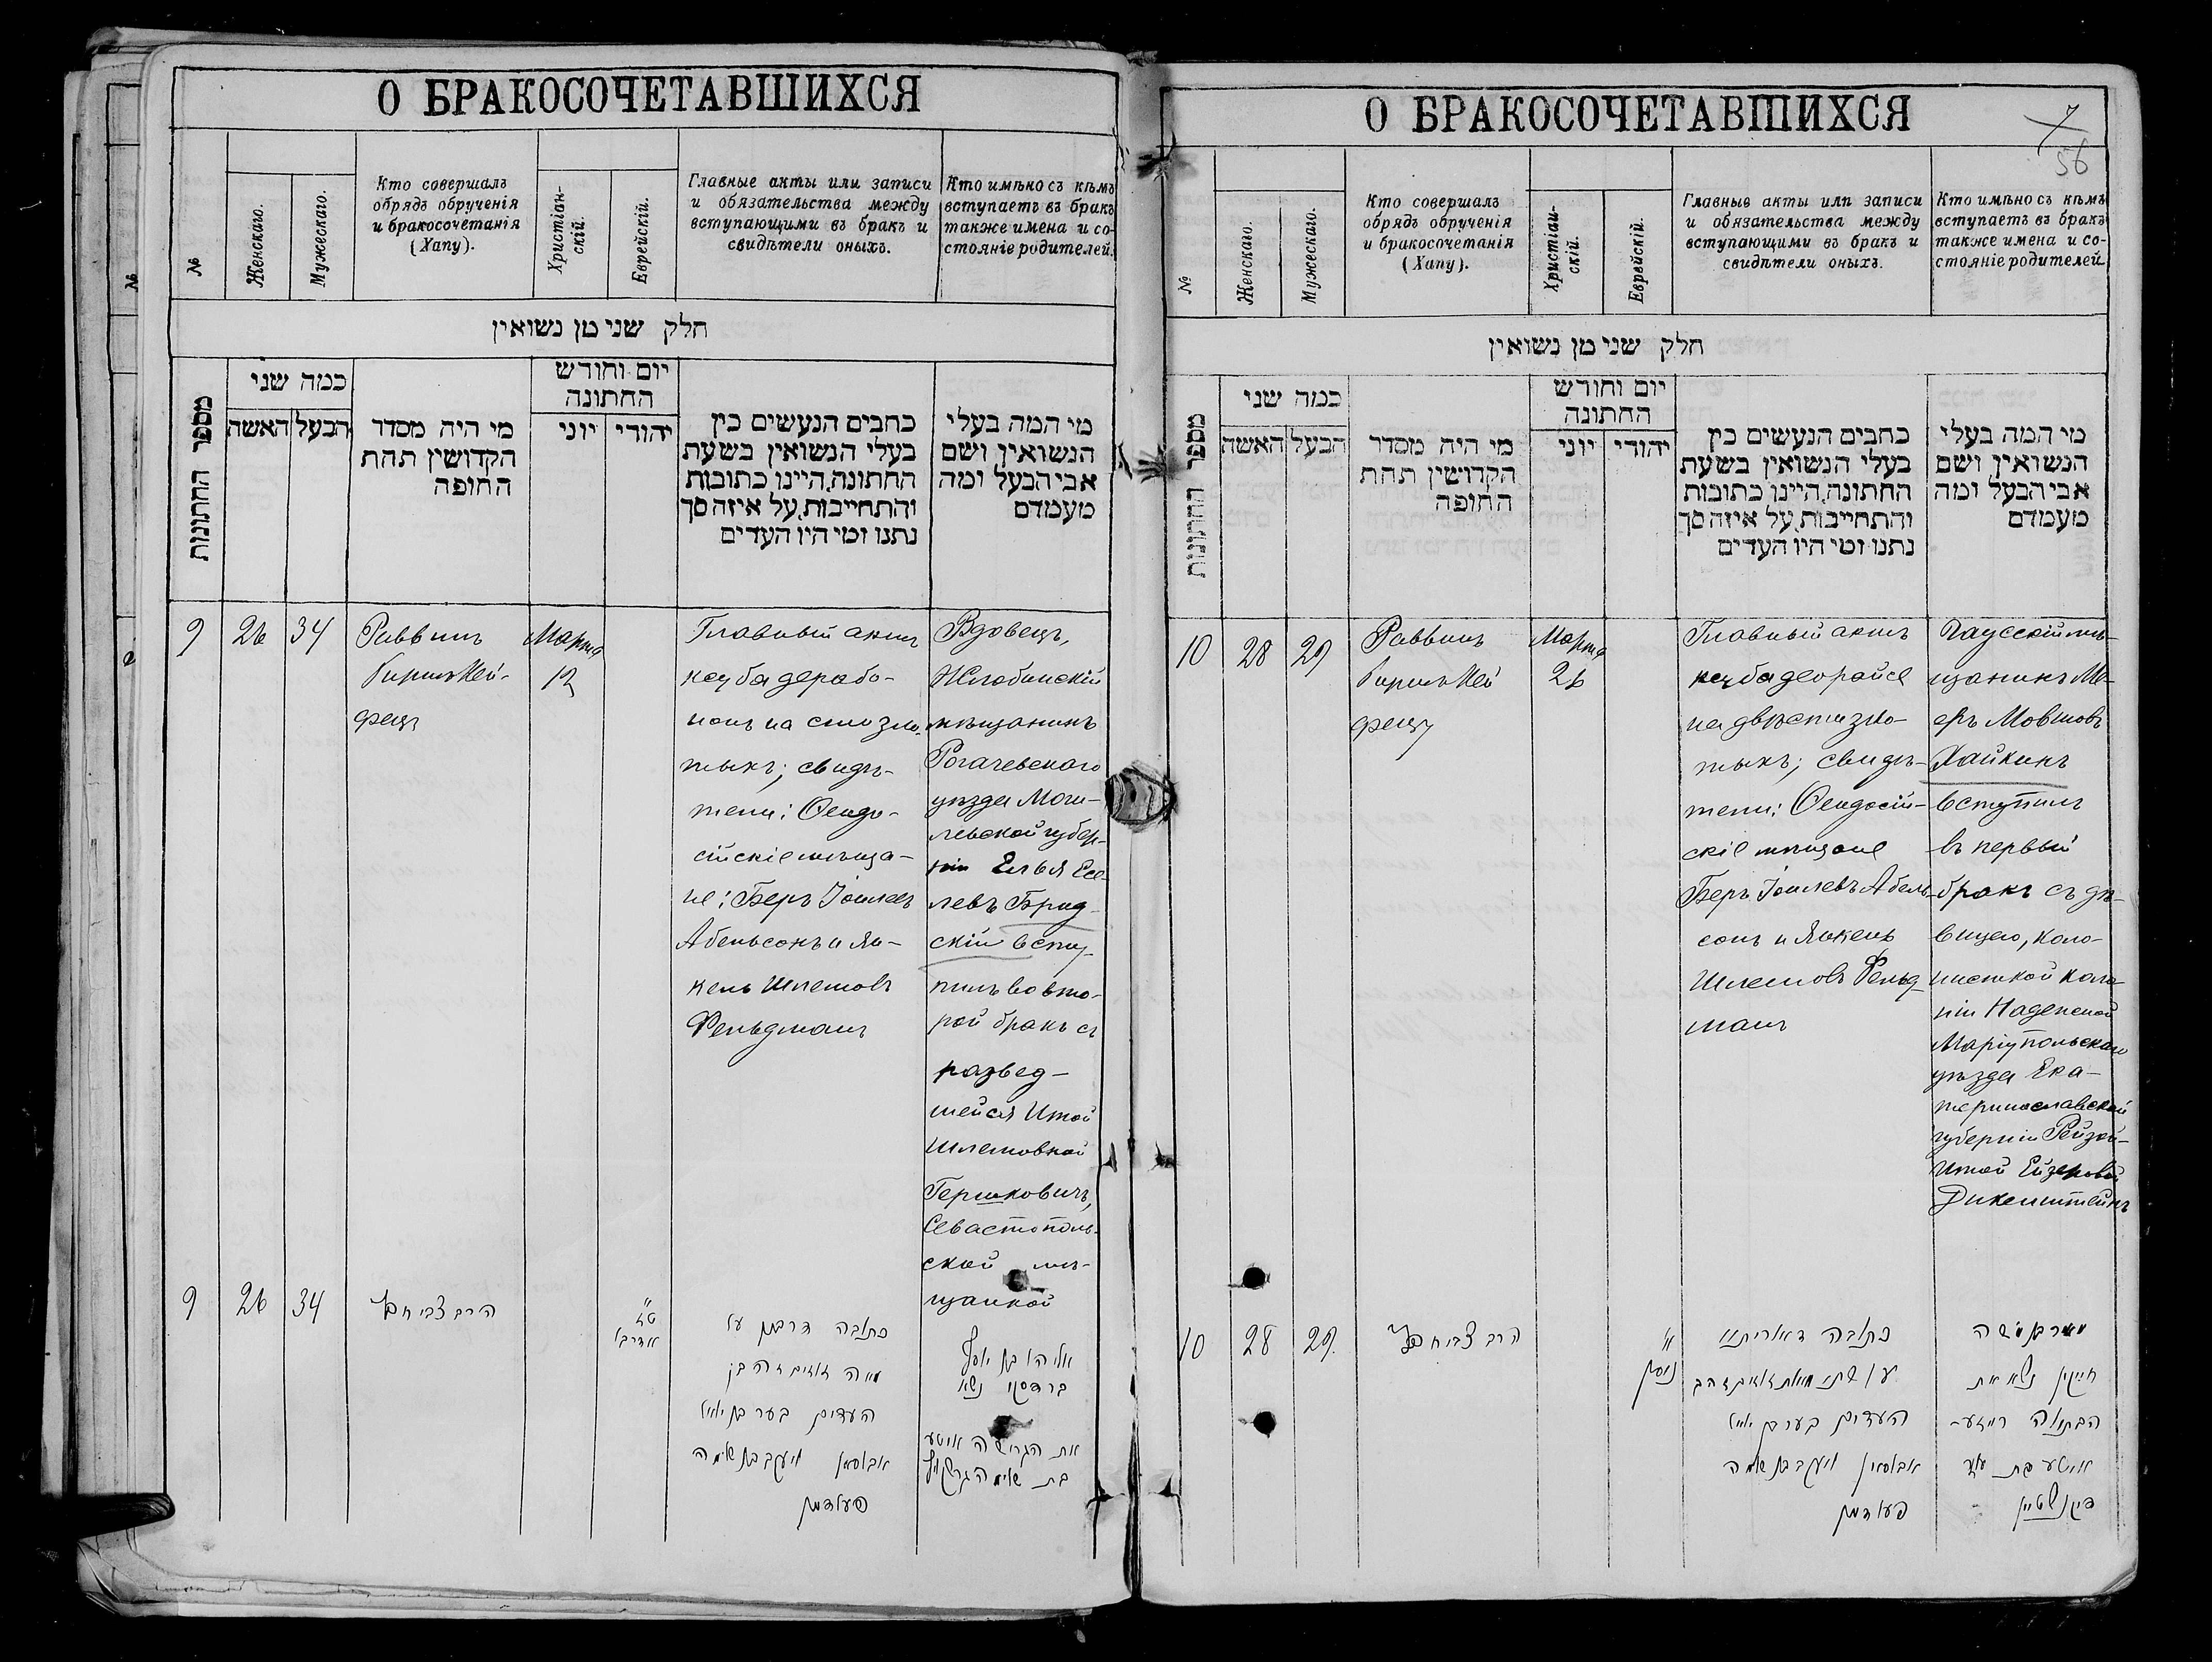 О БРАКОСОЧЕТАВШИХСЯ
№
Женскаго.
Мужескаго.
Кто совершалъ
обрядъ обрученія
и бракосочетанія
(Хапу).
Христіан-
скій.
Еврейскій.
Главные акты или записи
и обязательства между
вступающими въ бракъ и
свидѣтели оныхъ.
Кто имѣно съ кѣмъ
вступаетъ въ бракъ
также имена и со-
стояніе родителей.
חלק שני מן נשואין
מספר החתונות
כמה שני
הבעל האשה
מי היה מסדר
הקדושין תחת
החופה
יום וחודש
החתונה
יהודי יוני
כתבים הנעשים בין
בעלי הנשואין בשעת
החתונה, היינו כתובות
והתחייבות, על איזה סך
נתנו ומי היו העדים
מי המה בעלי
הנשואין ושם
אבי הבעל ומה
מעמדם
9
26
34
Раввинъ
Гиршъ Хей-
фецъ
Марта
12
Главный актъ
кцуба дерабо-
нонъ на сто зло-
тыхъ; свидѣ-
тели: Ѳеодо-
сійскіе мѣща-
не: Беръ Іошлевъ
Абельсонъ и Ян-
кель Шлемовъ
Фельдманъ
Вдовецъ,
Жлобинскій
мѣщанинъ
Рогачевскаго
уѣзда Моги-
левской губер-
ніи Елья Есе-
левъ Брид-
скій всту-
пилъ во вто-
рой бракъ съ
развед-
шейся Итой
Шлемовной
Гершковичъ,
Севастополь-
ской мѣ-
щанкой
9
26
34
הרב צבי חפץ
כתובה דרבנן על
מאה זהובים
העדים בער בן
אבלסאן יעקב בן שלמה
פעלדמן
אליהו בן יוסף
נשא
את הגרושה איטע
בת שלמה
О БРАКОСОЧЕТАВШИХСЯ
7
56
№
Женскаго.
Мужескаго.
Кто совершалъ
обрядъ обрученія
и бракосочетанія
(Хапу).
Христіан-
скій.
Еврейскій.
Главные акты или записи
и обязательства между
вступающими въ бракъ и
свидѣтели оныхъ.
Кто имѣно съ кѣмъ
вступаетъ въ бракъ
также имена и со-
стояніе родителей
חלק שני מן נשואין
מספר החתונות
כמה שני
הבעל האשה
מי היה מסדר
הקדושין תחת
החופה
יום וחודש
החתונה
יהודי יוני
כתבים הנעשים בין
בעלי הנשואין בשעת
החתונה, היינו כתובות
והתחייבות, על איזה סך
נתנו ומי היו העדים
מי המה בעלי
הנשואין ושם
אבי הבעל ומה
מעמדם
10
28
29
Раввинъ
Гиршъ Хей
фецъ
Марта
26
Главный актъ
кцуба деорайсе
на двѣсти зло-
тыхъ; свидѣ-
тели: Ѳеодосій-
скіе мѣщане
Беръ Іошлевъ Абель-
сонъ и Янкель
Шлемовъ Фельд-
манъ
Чаусскій мѣ-
щанинъ Ме-
еръ Мовшовъ
Хайкинъ
вступилъ
въ первый
бракъ съ дѣ-
вицею, коло-
нисткой коло-
ніи Надежной
Маріупольскаго
уѣзда Ека-
теринославской
губерніи Рейзой-
Итой Ейзеровой
Дикенштейнъ
10
28
29.
הרב צבי חפץ
ניסן
כתובה דאורייתא
על שתי מאות זהובים
העדים בער בן
אבלסאן יעקב בן שלמה
פעלדמן
מאיר בן משה
חייקין נשא את
הבתולה רייזע-
איטע בת
דיקנשטיין